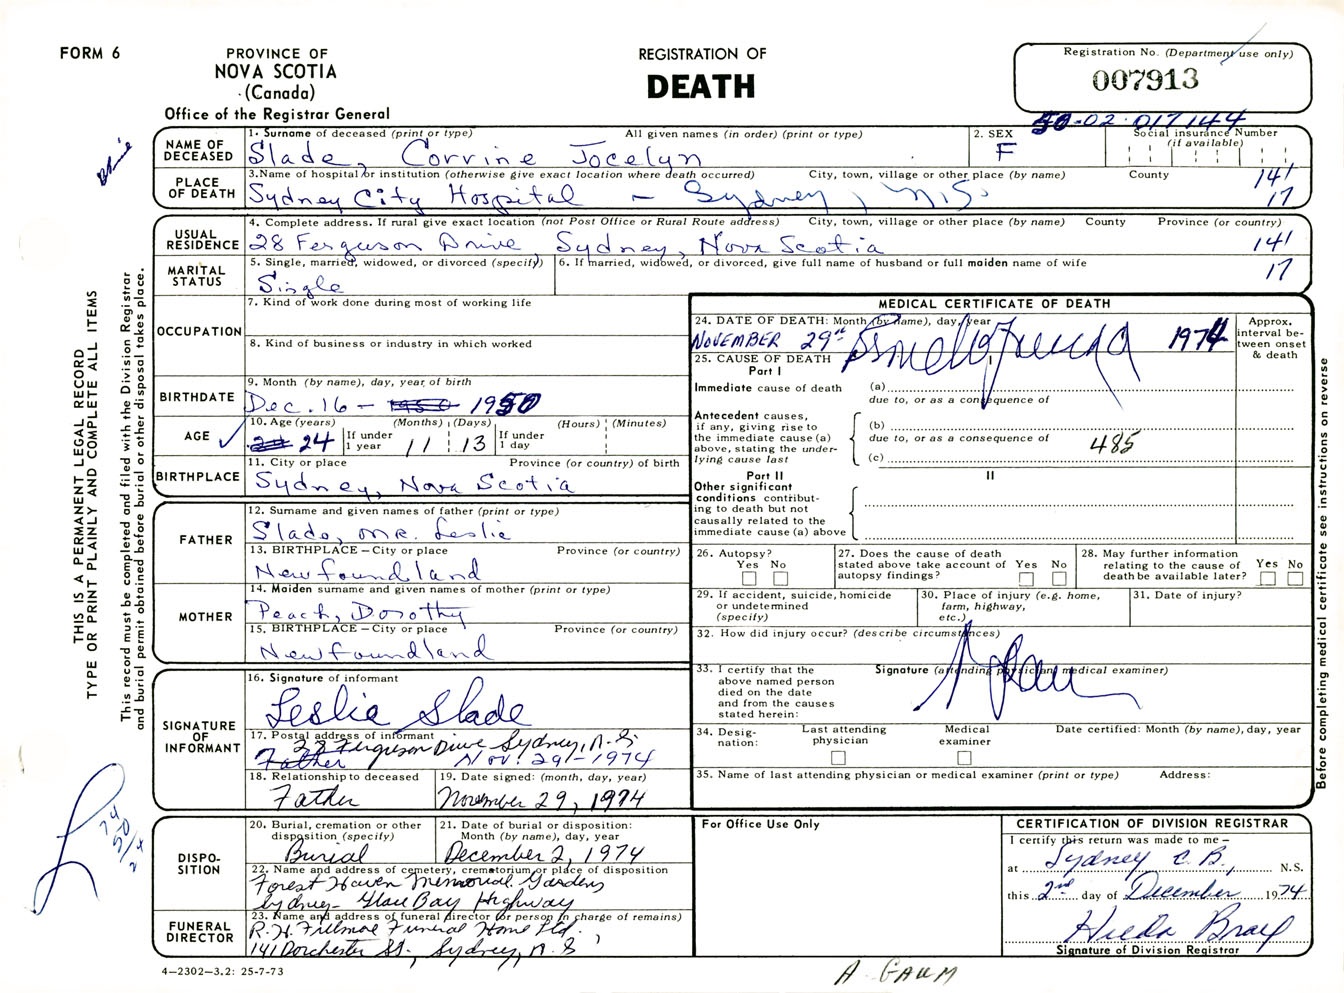 FORM 6
PROVINCE OF
NOVA SCOTIA
(Canada)
Office of the Registrar General
REGISTRATION OF
DEATH
Registration No. (Department use only)
007913
50-02-017144
NAME OF
DECEASED
1. Surname of deceased (print or type) All given names (in order) (print or type)
Slade, Corrine Jocelyn
2. SEX
F
Social insurance Number
(if available)
PLACE
OF DEATH
3. Name of hospital or institution (otherwise give exact location where death occurred) City, town, village or other place (by name) County
Sydney City Hospital - Sydney, N.S.
141
17
USUAL
RESIDENCE
4. Complete address. If rural give exact location (not Post Office or Rural Route address) City, town, village or other place (by name) County Province (or country)
28 Ferguson Drive, Sydney, Nova Scotia
141
17
MARITAL
STATUS
5. Single, married, widowed, or divorced (specify)
Single
6. If married, widowed, or divorced, give full name of husband or full maiden name of wife
OCCUPATION
7. Kind of work done during most of working life
8. Kind of business or industry in which worked
BIRTHDATE
9. Month (by name), day, year of birth
Dec. 16 - 1950 1950
AGE
10. Age (years) (Months) (Days) (Hours) (Minutes)
24 If under 1 year 11 13 If under 1 day
BIRTHPLACE
11. City or place Province (or country) of birth
Sydney, Nova Scotia
FATHER
12. Surname and given names of father (print or type)
Slade, Mr. Leslie
13. BIRTHPLACE – City or place Province (or country)
Newfoundland
MOTHER
14. Maiden surname and given names of mother (print or type)
Peach, Dorothy
15. BIRTHPLACE – City or place Province (or country)
Newfoundland
SIGNATURE
OF
INFORMANT
16. Signature of informant
Leslie Slade
17. Postal address of informant
28 Ferguson Drive Sydney, N.S.
Father Nov. 29 - 1974
18. Relationship to deceased
Father
19. Date signed: (month, day, year)
November 29, 1974
DISPO-
SITION
20. Burial, cremation or other
disposition (specify)
Burial
21. Date of burial or disposition:
Month (by name), day, year
December 2, 1974
22. Name and address of cemetery, crematorium or place of disposition
Forest Haven Memorial Gardens
Sydney - Glace Bay Highway
FUNERAL
DIRECTOR
23. Name and address of funeral director (or person in charge of remains)
R.H. Fillmore Funeral Home Ltd.,
141 Dorchester St., Sydney, N.S.
4–2302–3.2: 25-7-73
MEDICAL CERTIFICATE OF DEATH
24. DATE OF DEATH: Month (by name), day, year
NOVEMBER 29th 1974
Approx.
interval be-
tween onset
& death
25. CAUSE OF DEATH
Part I
Immediate cause of death (a)
due to, or as a consequence of
Antecedent causes,
if any, giving rise to
the immediate cause (a)
above, stating the under-
lying cause last
(b)
due to, or as a consequence of
485
(c)
Part II
II
Other significant
conditions contribut-
ing to death but not
causally related to the
immediate cause (a) above
26. Autopsy?
Yes No
27. Does the cause of death
stated above take account of
autopsy findings?
Yes No
28. May further information
relating to the cause of
death be available later?
Yes No
29. If accident, suicide, homicide
or undetermined
(specify)
30. Place of injury (e.g. home,
farm, highway,
etc.)
31. Date of injury?
32. How did injury occur? (describe circumstances)
33. I certify that the
above named person
died on the date
and from the causes
stated herein:
Signature (attending physician, medical examiner)
34. Desig-
nation:
Last attending
physician
Medical
examiner
Date certified: Month (by name), day, year
35. Name of last attending physician or medical examiner (print or type) Address:
For Office Use Only
CERTIFICATION OF DIVISION REGISTRAR
I certify this return was made to me –
at Sydney C.B., N.S.
this 2nd day of December 1974
Hilda Bray
Signature of Division Registrar
A GAUM
THIS IS A PERMANENT LEGAL RECORD
TYPE OR PRINT PLAINLY AND COMPLETE ALL ITEMS
This record must be completed and filed with the Division Registrar
and burial permit obtained before burial or other disposal takes place.
Before completing medical certificate see instructions on reverse
74
50
24